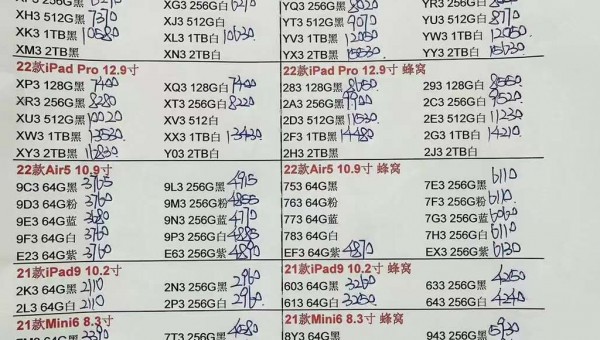 XH3 512G黑 7370 XJ3 512G白 YT3 512G黑 9070 YU3 512G白 8770
XK3 1TB黑 10580 XL3 1TB白 10630 YV3 1TB黑 12050 YW3 1TB白 12050
XM3 2TB黑 XN3 2TB白 YX3 2TB黑 15530 YY3 2TB白 15630
22款iPad Pro 12.9寸 22款iPad Pro 12.9寸 蜂窝
XP3 128G黑 7400 XQ3 128G白 7400 283 128G黑 8650 293 128G白 8550
XR3 256G黑 8280 XT3 256G白 8220 2A3 256G黑 9900 2C3 256G白 9520
XU3 512G黑 10020 XV3 512G白 2D3 512G黑 11530 2E3 512G白 11230
XW3 1TB黑 13530 XX3 1TB白 13430 2F3 1TB黑 14480 2G3 1TB白 14210
XY3 2TB黑 11830 Y03 2TB白 2H3 2TB黑 2J3 2TB白
22款Air5 10.9寸 22款Air5 10.9寸 蜂窝
9C3 64G黑 3765 9L3 256G黑 4915 753 64G黑 7E3 256G黑 6110
9D3 64G粉 3760 9M3 256G粉 4855 763 64G粉 7F3 256G粉 6110
9E3 64G蓝 3680 9N3 256G蓝 4770 773 64G蓝 7G3 256G蓝 6060
9F3 64G白 3760 9P3 256G白 4885 783 64G白 7H3 256G白 6110
E23 64G紫 3760 E63 256G紫 4890 EF3 64G紫 4870 EX3 256G紫 6130
21款iPad9 10.2寸 21款iPad9 10.2寸 蜂窝
2K3 64G黑 2110 2N3 256G黑 2960 603 64G黑 3260 633 256G黑 4250
2L3 64G白 2110 2P3 256G白 2960 613 64G白 3250 643 256G白 4240
21款Mini6 8.3寸 21款Mini6 8.3寸 蜂窝
7T3 256G黑 4580 8Y3 64G黑 943 256G黑 5930